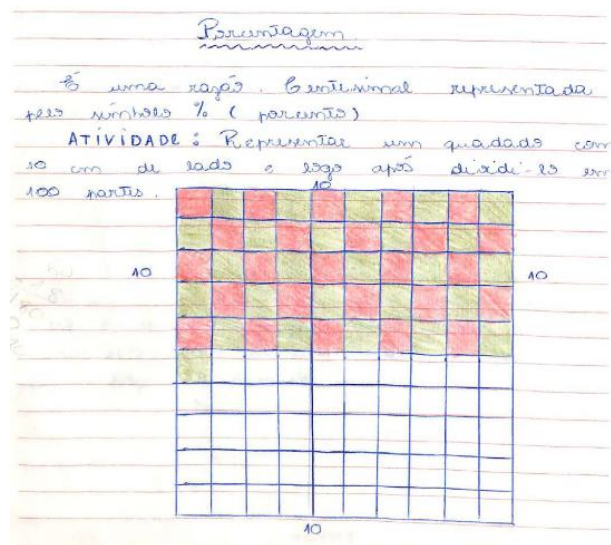 Porcentagem.
É uma razão. Centesimal representada
pelo símbolo % (porcento)
ATIVIDADE: Representar um quadado com
10 cm de lado e logo após dividi-lo em
100 partes.
10
10
10
10